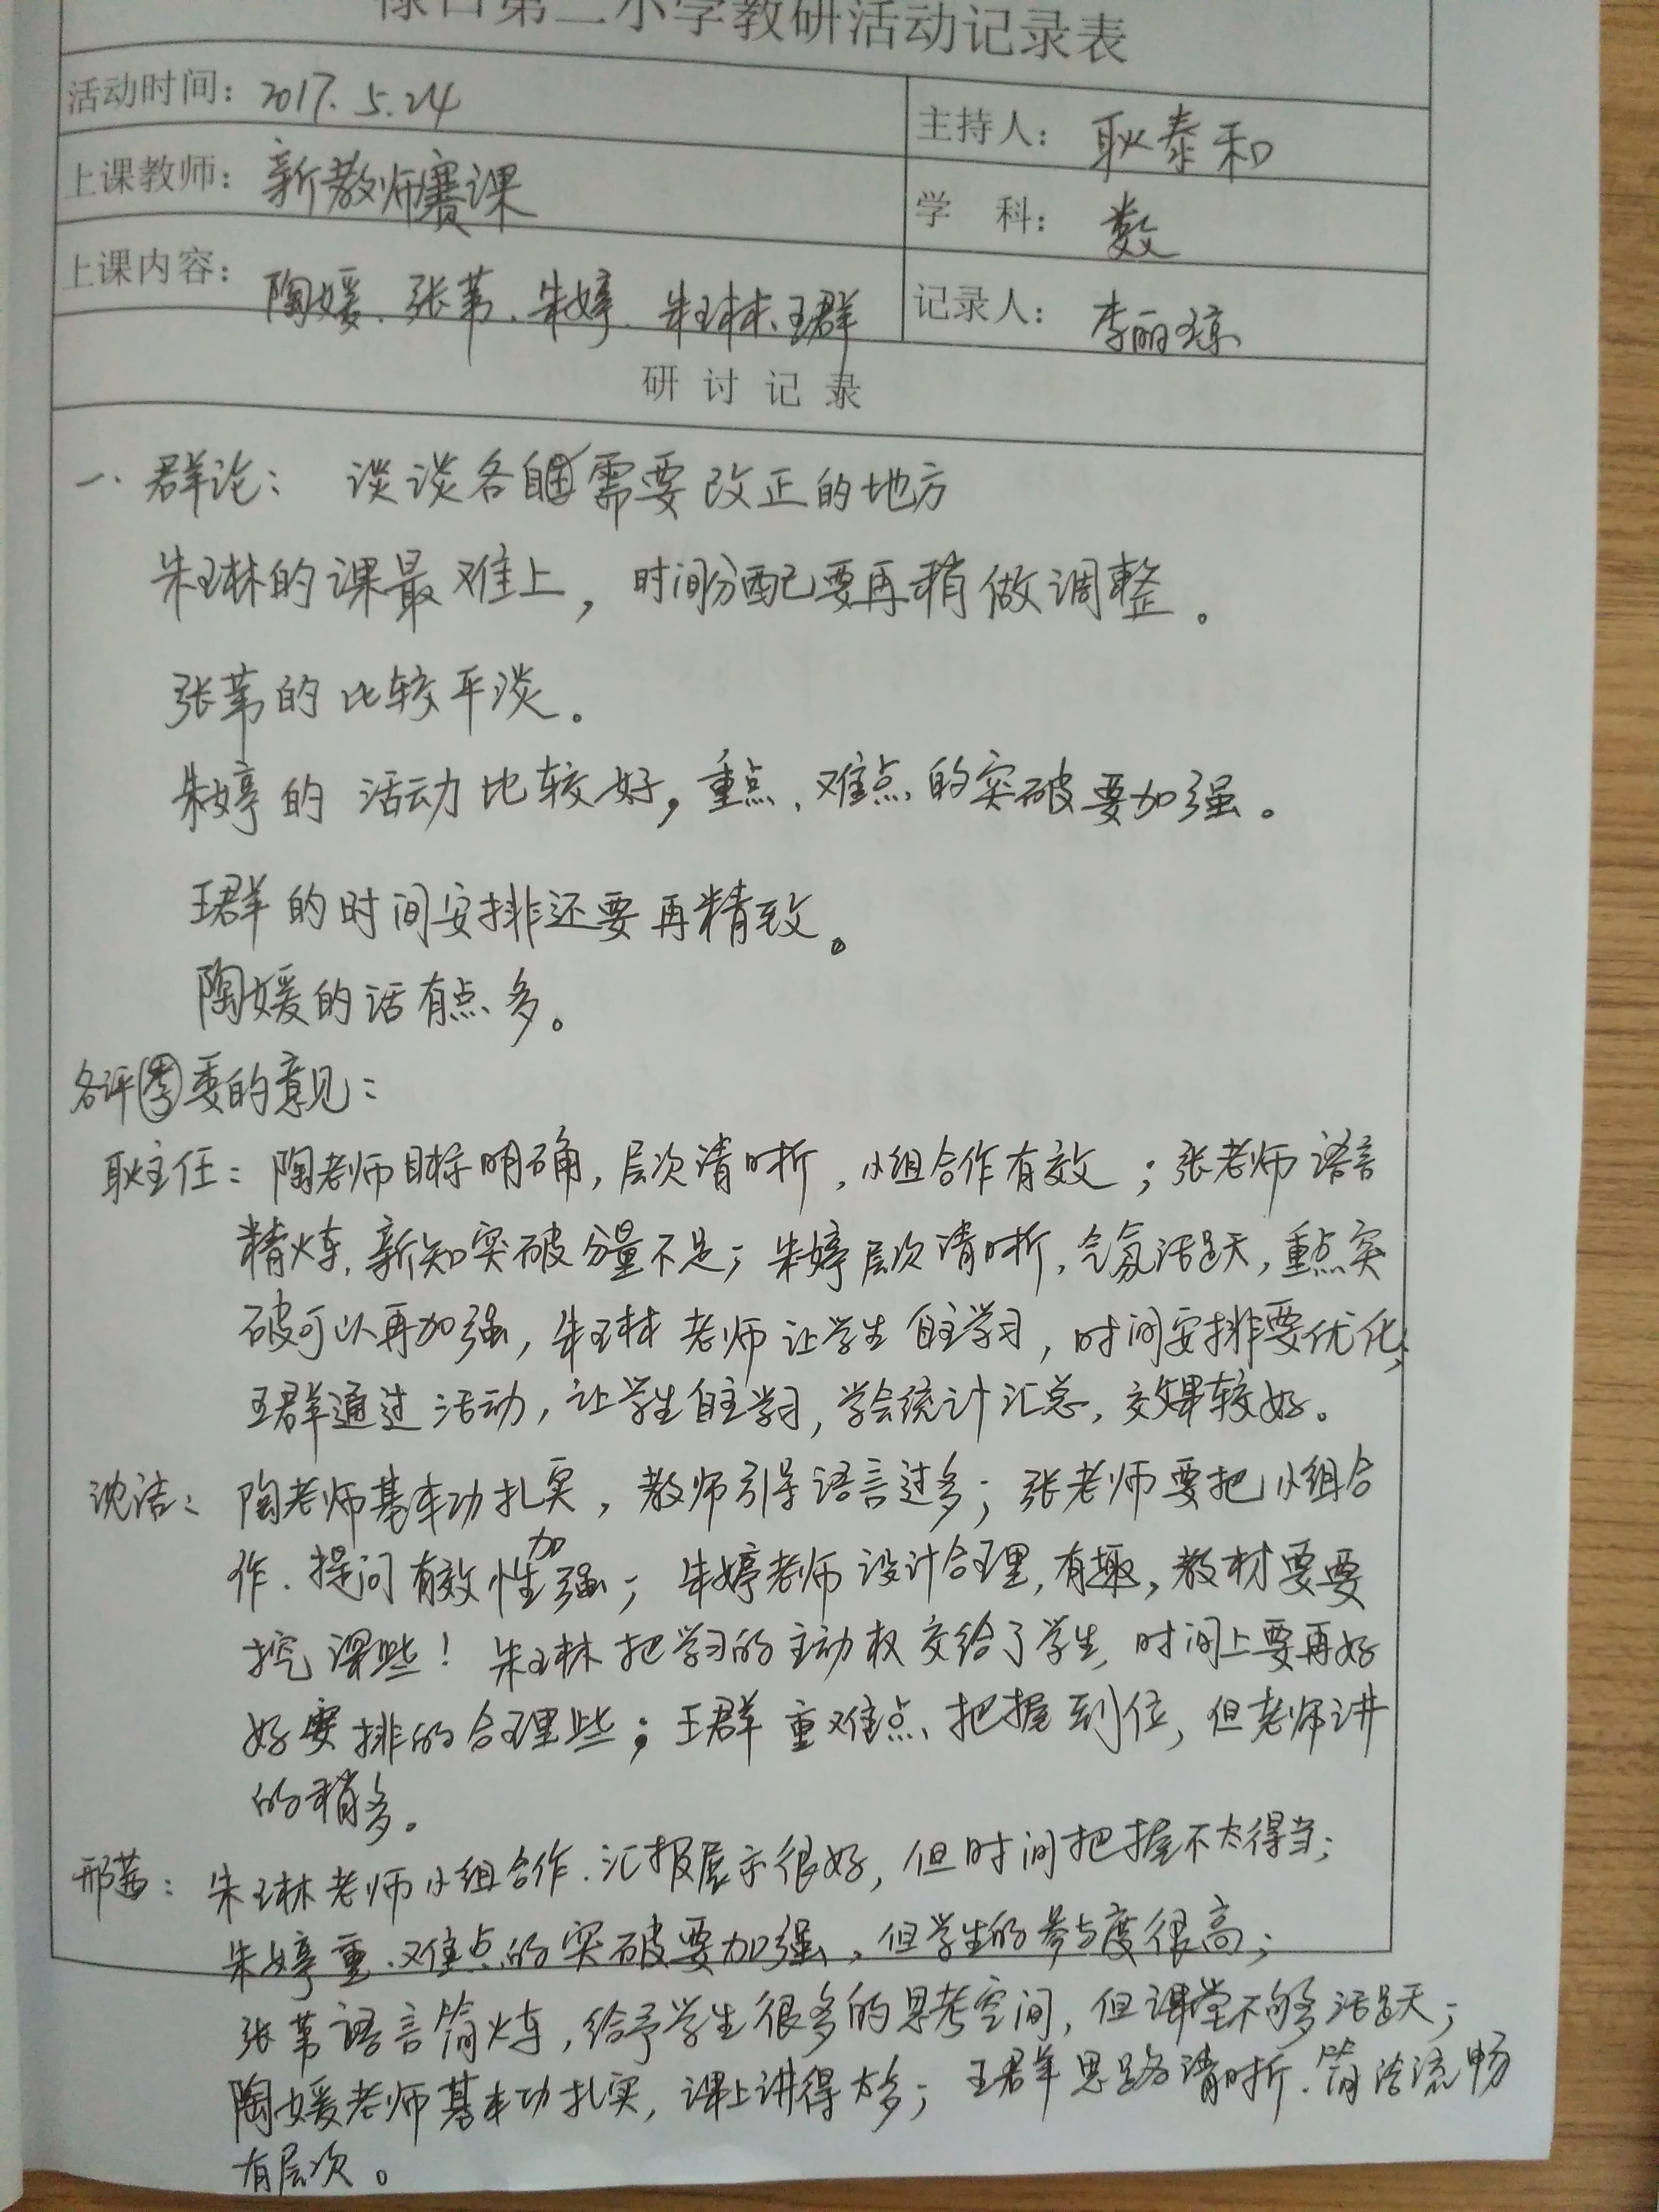 禄口第二小学教研活动记录表
活动时间: 2017.5.24 主持人: 耿泰和
上课教师: 新教师赛课 学 科: 数
上课内容: 陶媛、张苇、朱婷、朱玉林、王群 记录人: 李丽琼
研 讨 记 录
一、群论: 谈谈各自需要改正的地方
朱玉林的课最难上, 时间分配要再稍做调整。
张苇的比较平淡。
朱婷的 活动比较好,重点、难点的突破要加强。
王群的时间安排还要再精致。
陶媛的话有点多。
各评委的意见:
耿主任: 陶老师目标明确,层次清晰,小组合作有效;张老师语言
精炼,新知突破分量不足;朱婷层次清晰,气氛活跃,重点突
破可以再加强,朱玉林老师让学生自主学习,时间安排要优化;
王群通过活动,让学生自主学习,学会统计汇总,效果较好。
沈洁: 陶老师基本功扎实,教师引导语言过多;张老师要把小组合
作、提问有效性加强;朱婷老师设计合理,有趣,教材要要
挖深些!朱玉林把学习的主动权交给了学生,时间上要再好
好安排的合理些;王群重难点、把握到位,但老师讲
的稍多。
邢茜: 朱玉林老师小组合作、汇报展示很好,但时间把握不太得当;
朱婷重、难点的突破要加强,但学生的参与度很高;
张苇语言简炼,给予学生很多的思考空间,但课堂不够活跃;
陶媛老师基本功扎实,课上讲得太多;王群思路清晰、简洁流畅
有层次。